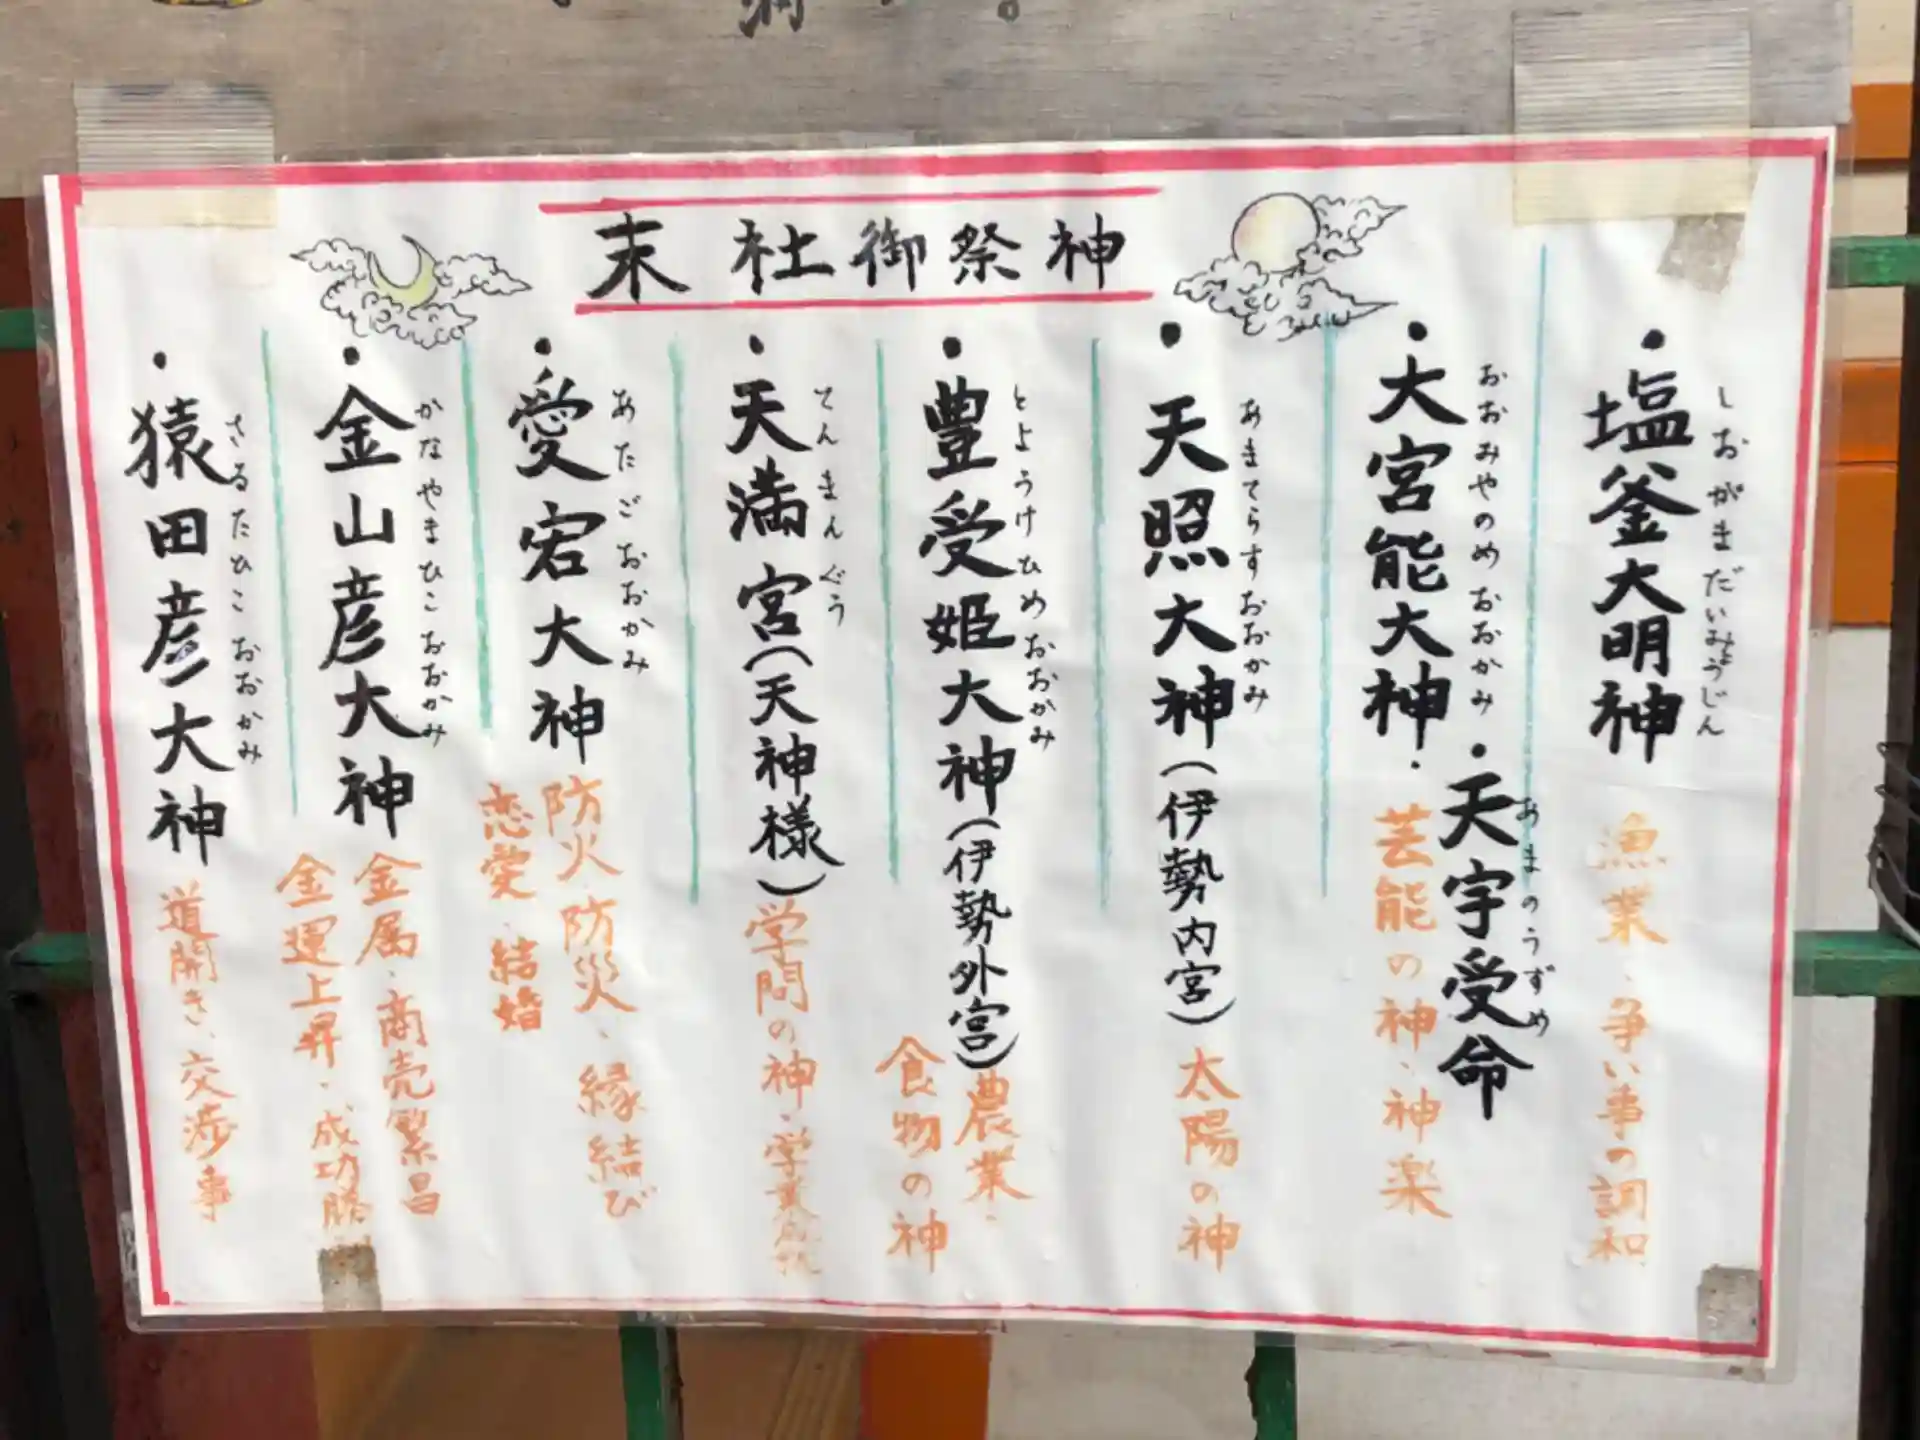 末社御祭神
・塩釜大明神
しおがまだいみょうじん
漁業・争い事の調和
・大宮能大神・
おおみやのめおおかみ
・天宇受命
あまのうずめ
芸能の神・神楽
・天照大神(伊勢内宮)
あまてらすおおかみ
太陽の神
・豊受姫大神(伊勢外宮)
とようけひめおおかみ
農業・
食物の神
・天満宮(天神様)
てんまんぐう
学問の神・学業成就
・愛宕大神
あたごおおかみ
防火防災・縁結び
恋愛・結婚
・金山彦大神
かなやまひこおおかみ
金属・商売繁昌
金運上昇・成功勝
・猿田彦大神
さるたひこおおかみ
道開き、交渉事